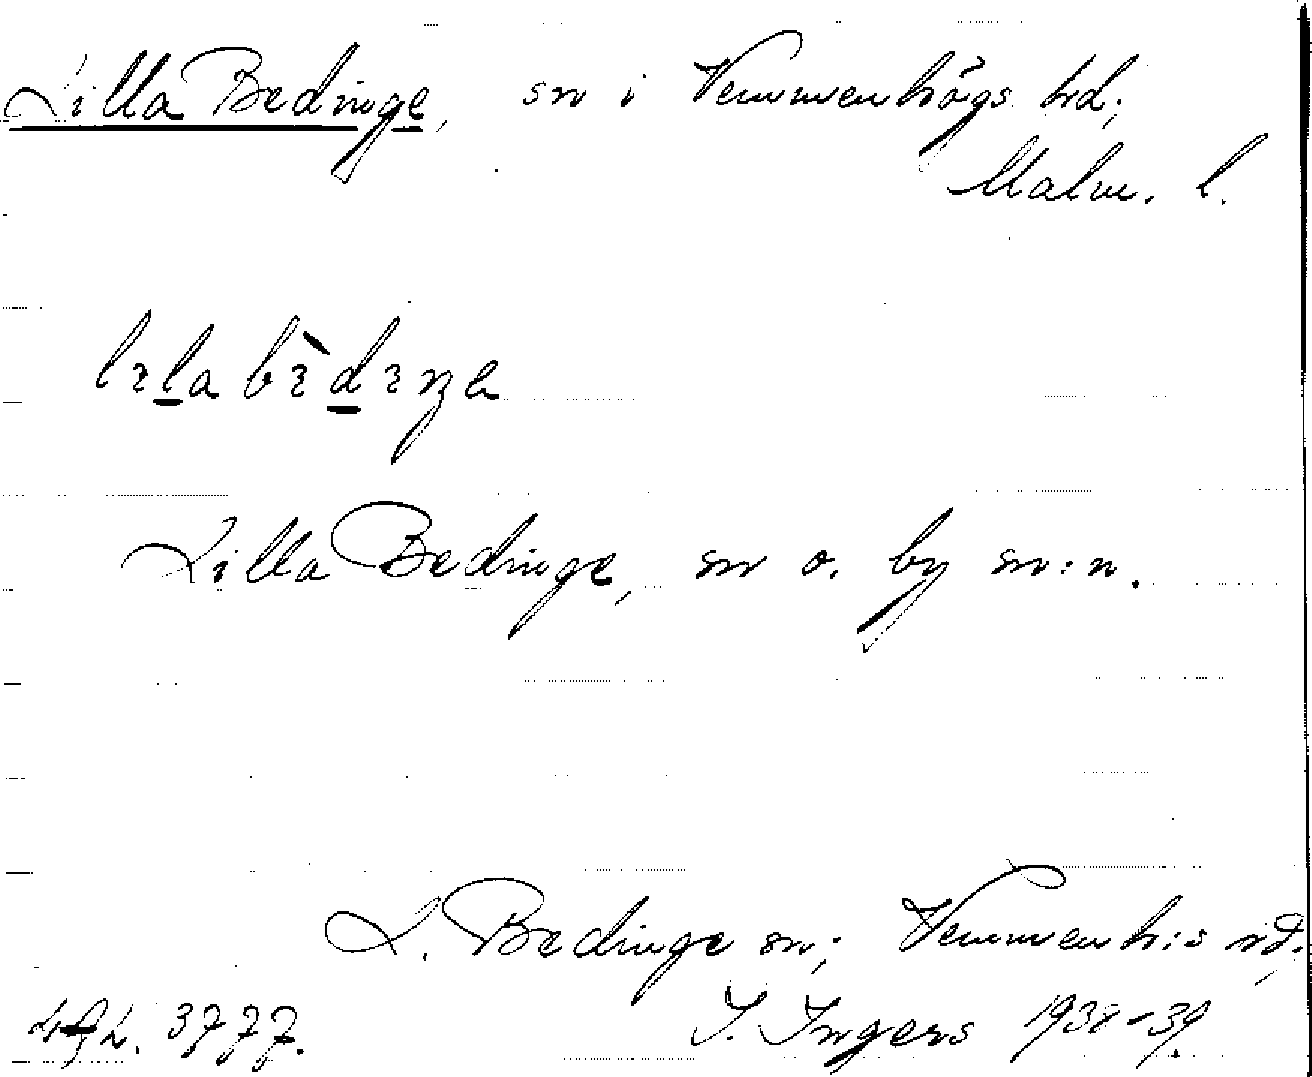 Lilla Bedinge, sn i Vemmenhögs hd;
Malm. l.
Lilla Bedinge, sn o. by sn:n.
L. Bedinge sn; Vemmenh:s hd;
3777. I. Ingers 1938-39.